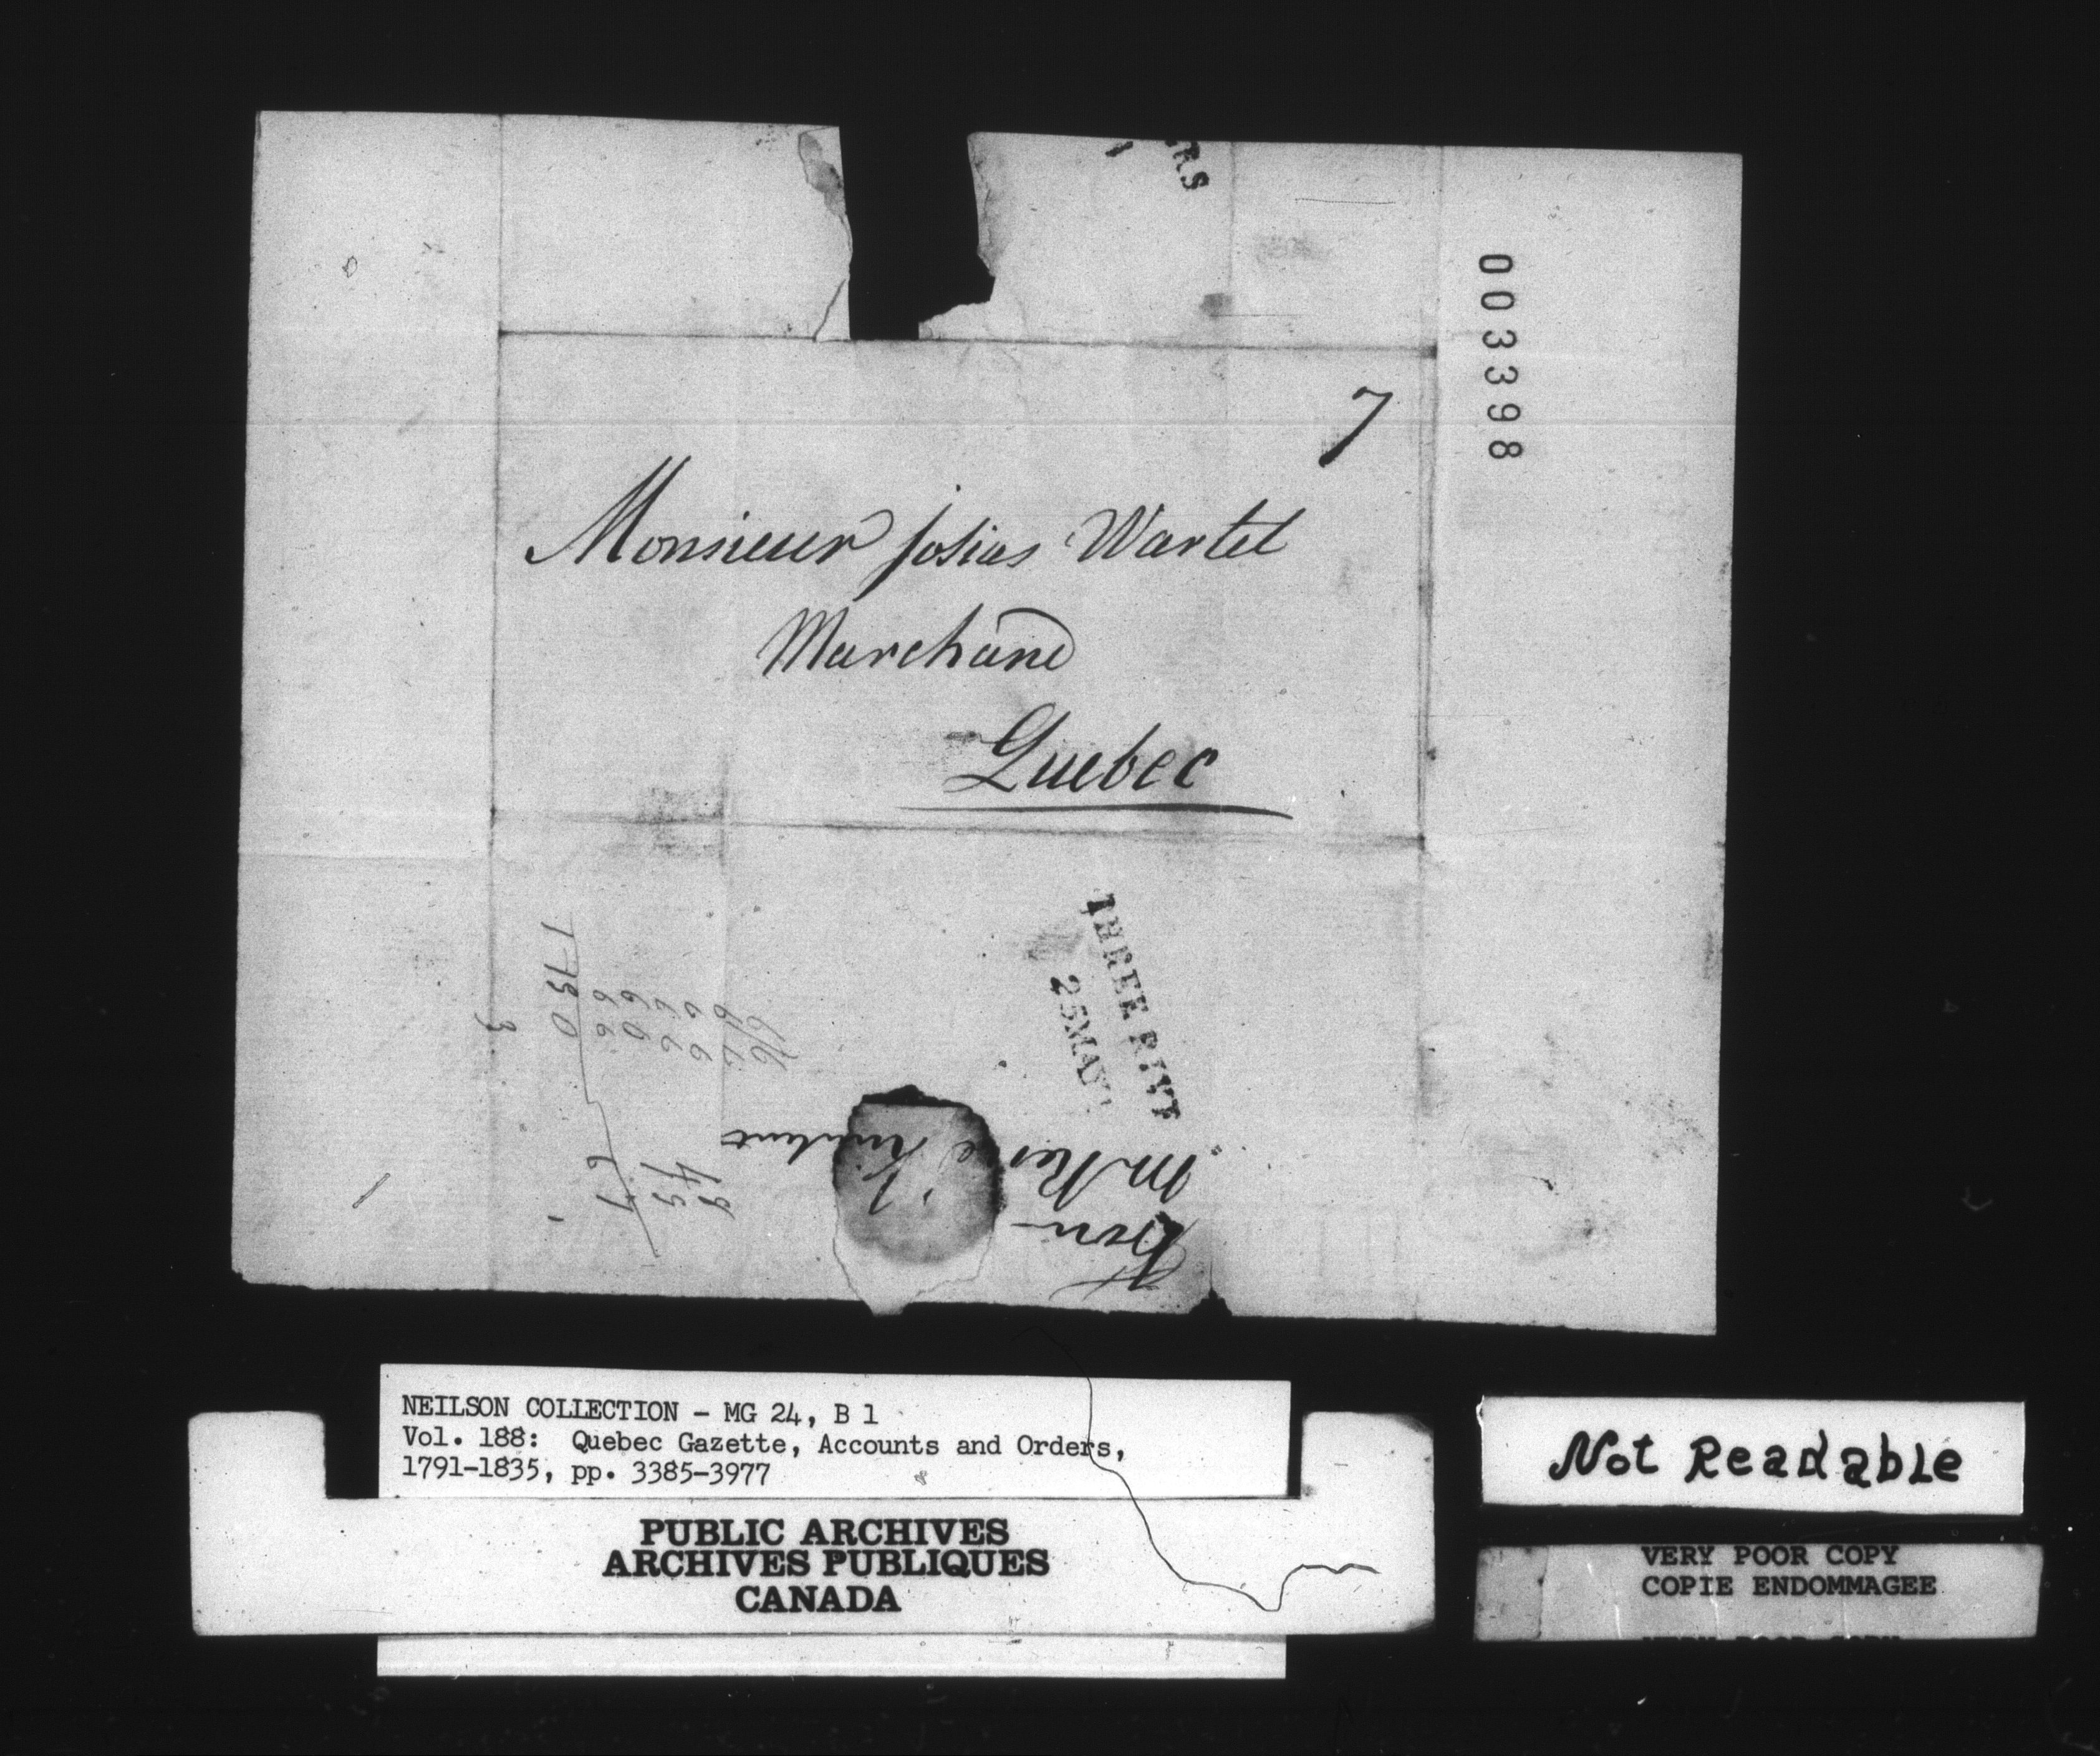 RS
003398
7
Monsieur Josias Wartel
Marchand
Quebec
THREE RIV
25 MAY
From
NEILSON COLLECTION - MG 24, B 1
Vol. 188: Quebec Gazette, Accounts and Orders,
1791-1835, pp. 3385-3977
PUBLIC ARCHIVES
ARCHIVES PUBLIQUES
CANADA
Not Readable
VERY POOR COPY
COPIE ENDOMMAGEE